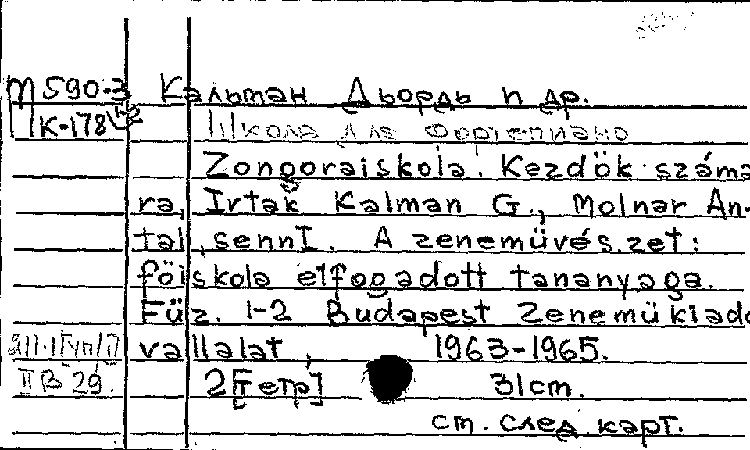 П590-3 Кальман Дьордь и др.
К-178 1-2 Школа для фортепиано
Zongoraiskola. Kezdök száma
ra, Irták Kalman G., Molnar An-
tal, sennI. A zenemüvés.zet:
föiskola elfogadott tananyaga.
Füz. 1-2 Budapest Zenemükiado
vallalat, 1963-1965.
II В 29. 2[тетр] 31cm.
ст. след карт.